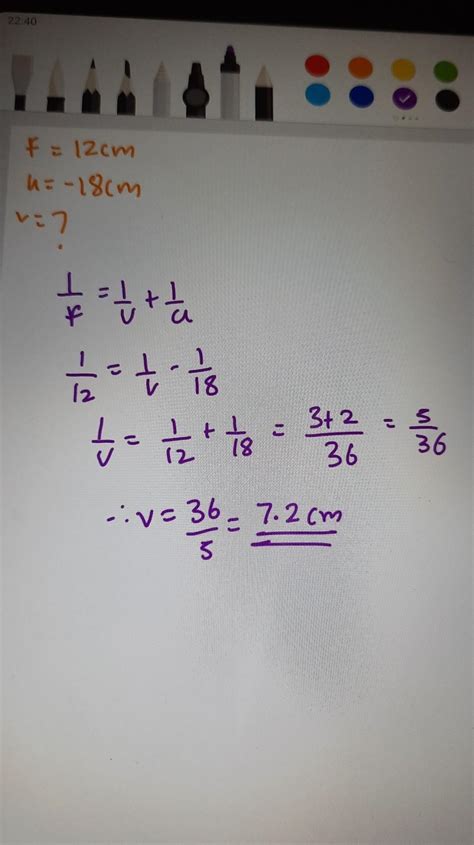 22:40
f = 12cm
u = -18cm
v = ?
1/f = 1/v + 1/u
1/12 = 1/v - 1/18
1/v = 1/12 + 1/18 = 3+2/36 = 5/36
∴ v = 36/5 = 7.2cm